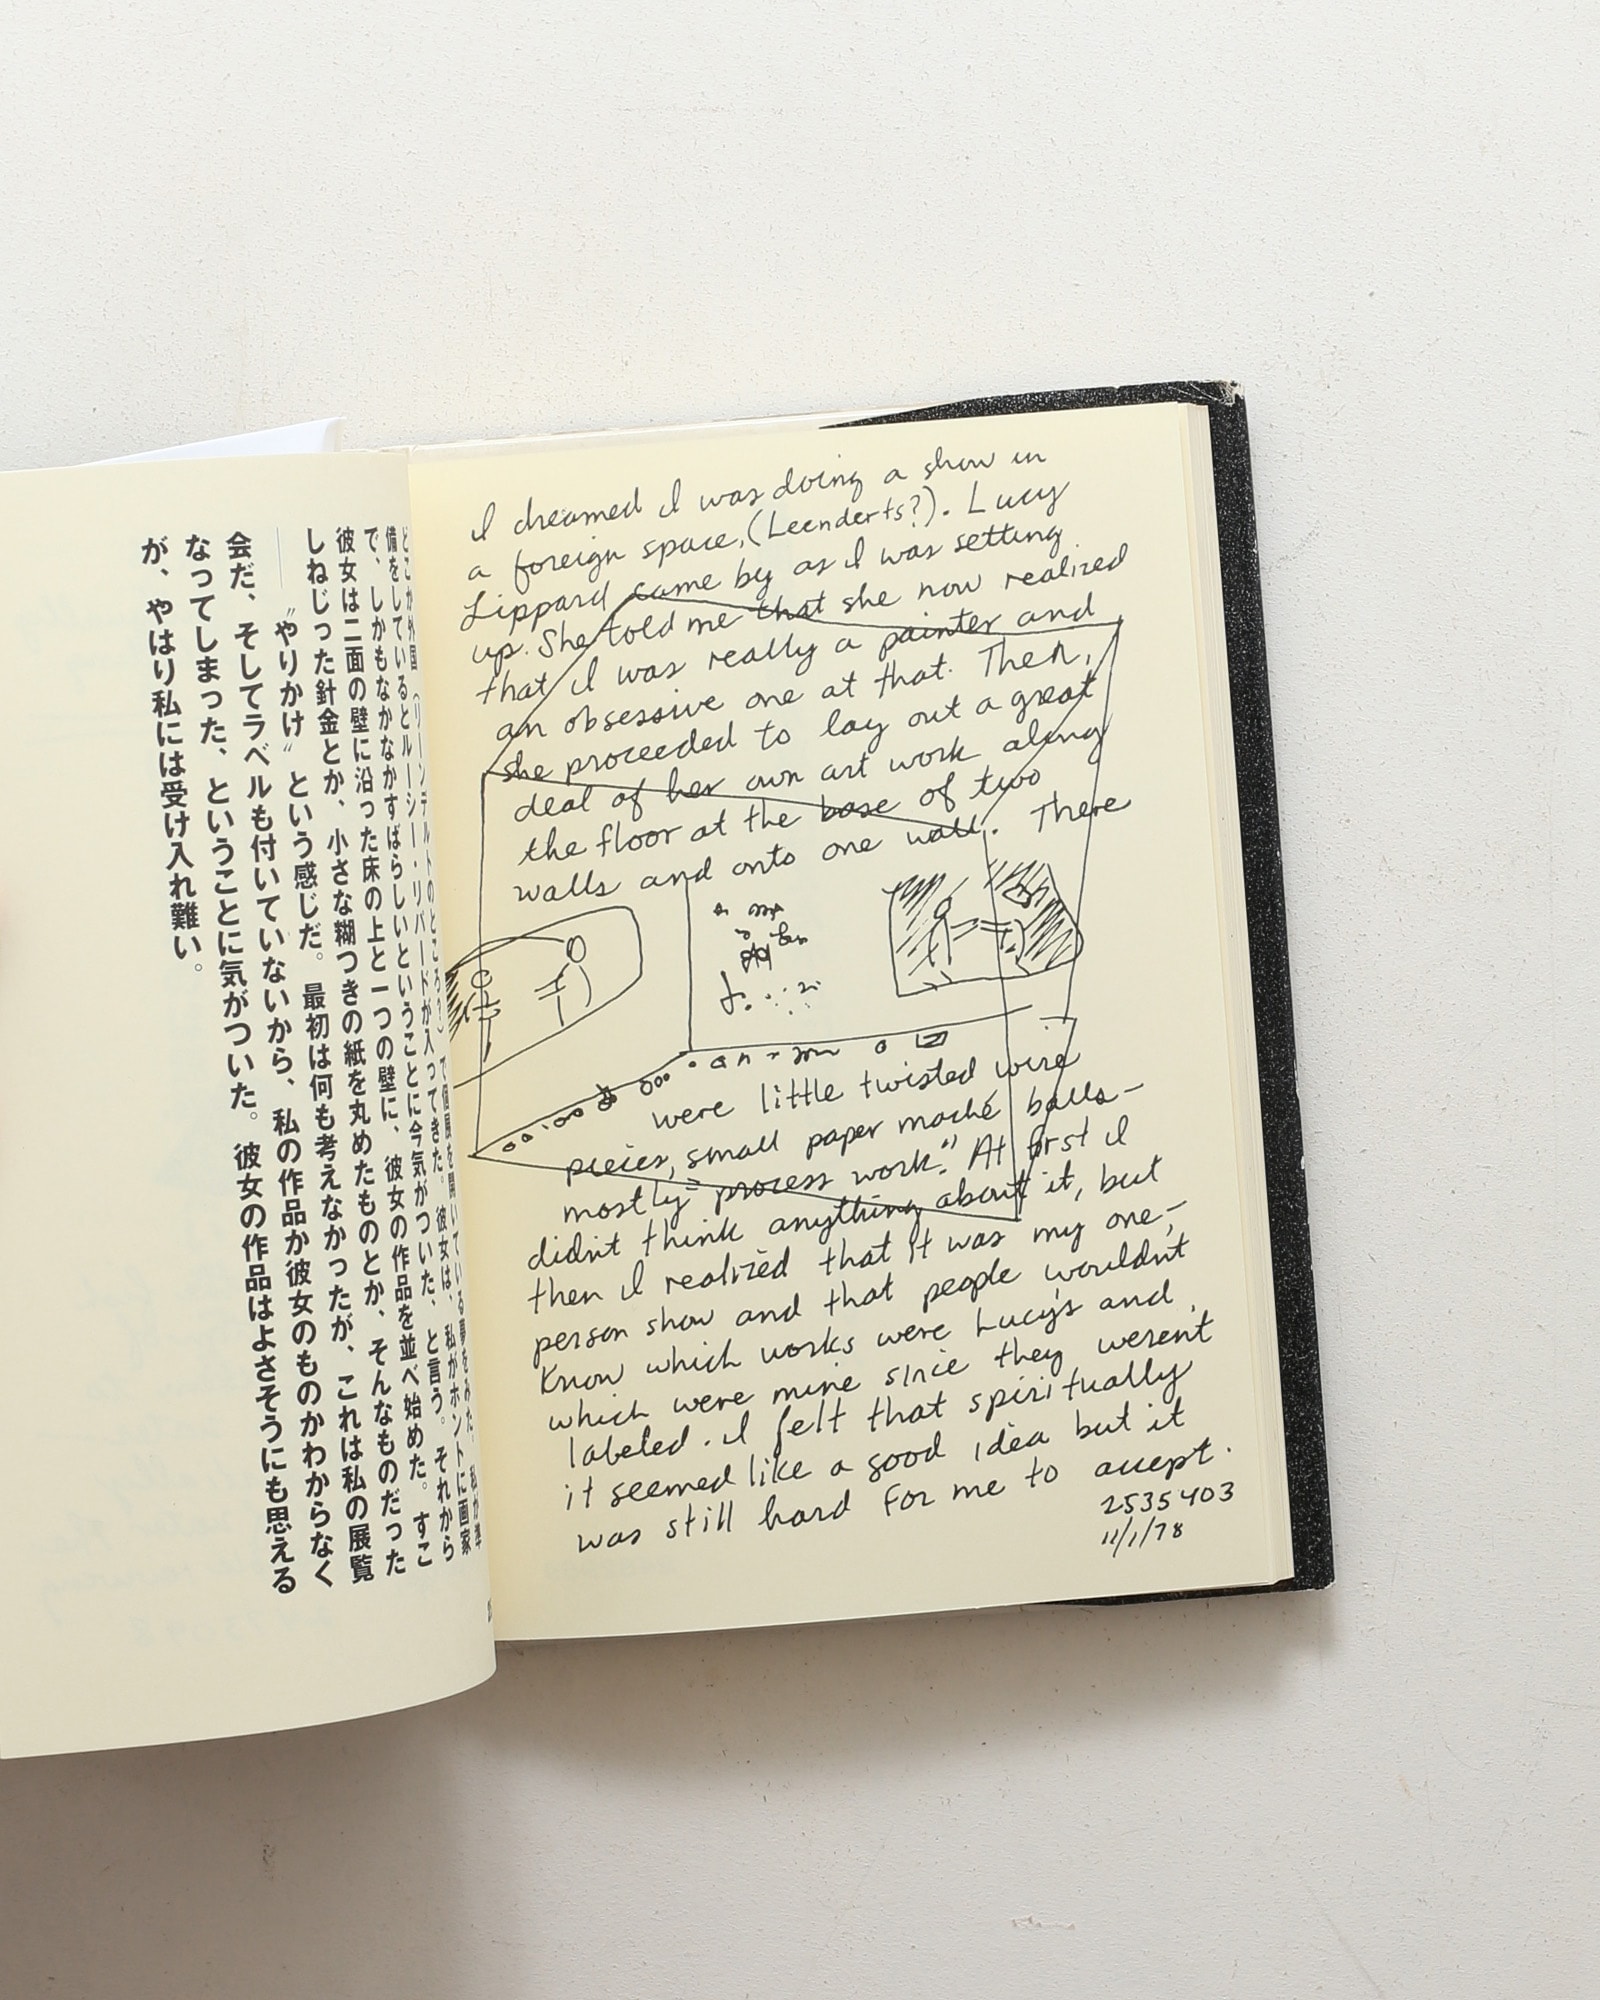 どこか外国(リーンデルトのところ?)で個展を開いている夢をみた。私が準
備をしているとルーシー・リパードが入ってきた。彼女は、私がホントに画家
で、しかもなかなかすばらしいということに今気がついた、と言う。それから
彼女は二面の壁に沿った床の上と一つの壁に、彼女の作品を並べ始めた。すこ
しねじった針金とか、小さな糊つきの紙を丸めたものとか、そんなものだった
――〝やりかけ〟という感じだ。最初は何も考えなかったが、これは私の展覧
会だ、そしてラベルも付いていないから、私の作品か彼女のものかわからなく
なってしまった、ということに気がついた。彼女の作品はよさそうにも思える
が、やはり私には受け入れ難い。
I dreamed I was doing a show in
a foreign space, (Leenderts?). Lucy
Lippard came by as I was setting
up. She told me that she now realized
that I was really a painter and
an obsessive one at that. Then,
she proceeded to lay out a great
deal of her own art work along
the floor at the base of two
walls and onto one wall. There
were little twisted wire
pieces, small paper maché balls—
mostly "process work." At first I
didnt think anything about it, but
then I realized that it was my one-
person show and that people wouldnt
know which works were Lucy's and
which were mine since they werent
labeled. I felt that spiritually
it seemed like a good idea but it
was still hard for me to accept.
2535403
11/1/78